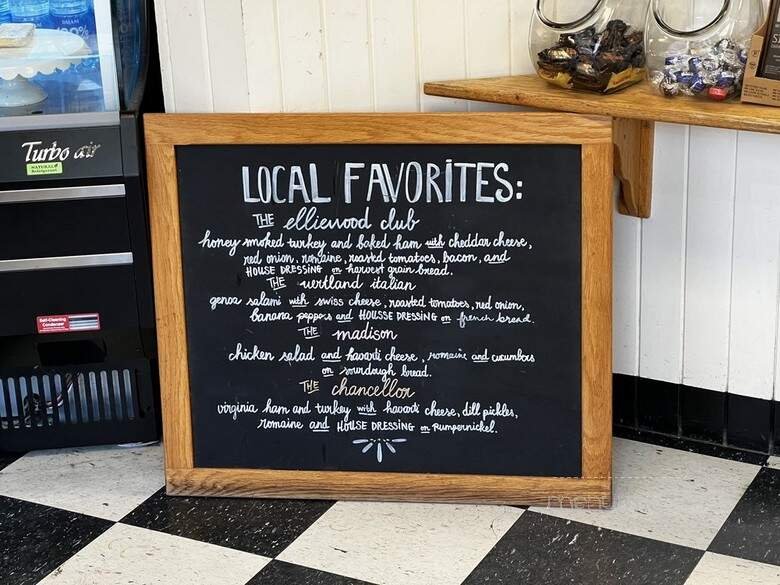 Turbo air
NATURAL
Refrigerant
Self-Cleaning
Condenser
LOCAL FAVORITES:
THE elliewood club
honey smoked turkey and baked ham with cheddar cheese,
red onion, romaine, roasted tomatoes, bacon, and
HOUSE DRESSING on harvest grain bread.
THE wertland italian
genoa salami with swiss cheese, roasted tomatoes, red onion,
banana peppers and HOUSSE DRESSING on french bread.
THE madison
chicken salad and havarti cheese, romaine and cucumbers
on sourdough bread.
THE chancellor
virginia ham and turkey with havarti cheese, dill pickles,
romaine and HOUSE DRESSING on pumpernickel.